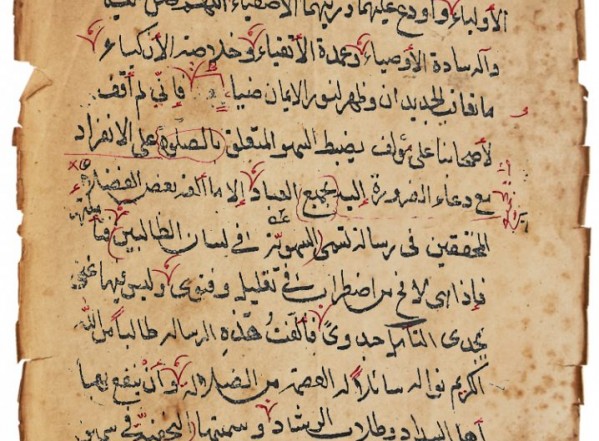 الأولياء وأودع عليهما وذريتهما الأصفياء اللهم صل
وآله سادة الأوصياء وعمدة الأتقياء وخلاصة الأزكياء
ما تعاقب الجديدان وظهر لنور الإيمان ضياء فإني لم أقف
لأصحابنا على مؤلف يضبط السهو المتعلق بالصلوة على الانفراد
مع دعاء الضرورة إليه لجميع العباد إلا ما ألفه بعض الفضلاء
المحققين في رسالة تسمى السهوية في لسان الطالبين
فإذا هي لا تخ من اضطراب في تعليل وفتوى وليس فيها غنى
يجدى التأمل جدوى فألفت هذه الرسالة طالبا من الله
الكريم نواله سائلا له العصمة من الضلالة وأن ينفع بها
أهل السداد وطلاب الرشاد وسميتها في